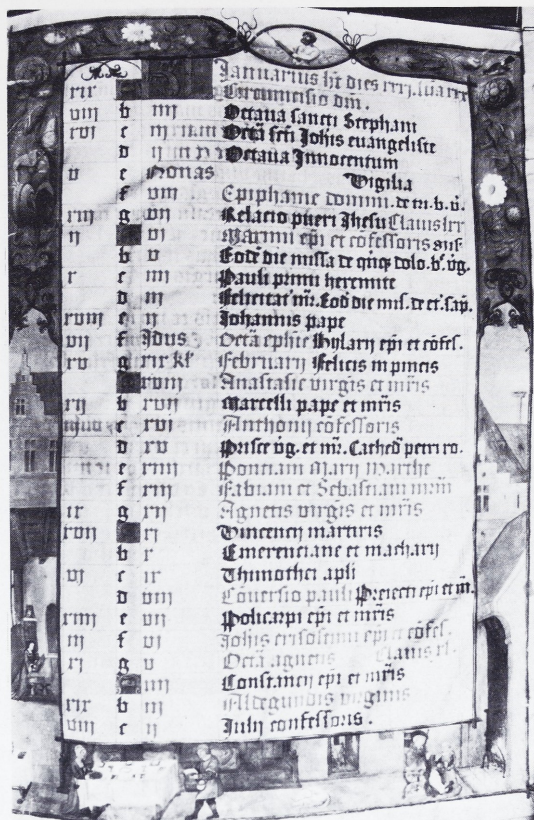 Januarius ht dies xxxi. luna xxx
xix Circumcisio dni.
viii b iiij Octaua sancti Stephani
xvi c iij Octa scti Johis euangeliste
d ij Octaua Innocentum
v e Nonas Vigilia
f viij Epiphanie domini. de m. b. v.
xiij g vij Relatio pueri Jhesu Clauis lxx
ij vj epi et cofessoris
b v Eode die missa de qnq dolo. b. vg.
x c iiij Pauli primi heremite
d iij Felicitat mr. Eod die mis. de et. sap.
xviij e ij Johannis pape
vij f Jdus Octa ephie Hylarij epi et cofes.
xv g xix kl Februarij Felicis in pincis
xviij Anastasie virgis et mris
xij b xvij Marcelli pape et mris
c xvj Anthonij cofessoris
d xv Prisce vg. et mr. Cathed petri ro.
e xiiij Ponciani Marij Marthe
f xiij Fabiani et Sebastiani mrm
ix g xij Agnetis virgis et mris
xvij xj Vincencij martiris
b x Emerenciane et macharij
vj c ix Thimothei apli
d viij Couersio pauli Preiecti epi et m.
xiiij e vij Policarpi epi et mris
iij f vj Johis crisostimi epi et cofes.
xj g v Octa agnetis Clauis xl.
iiij Constancij epi et mris
xix b iij Aldegundis virginis
viij c ij Julij confessoris.